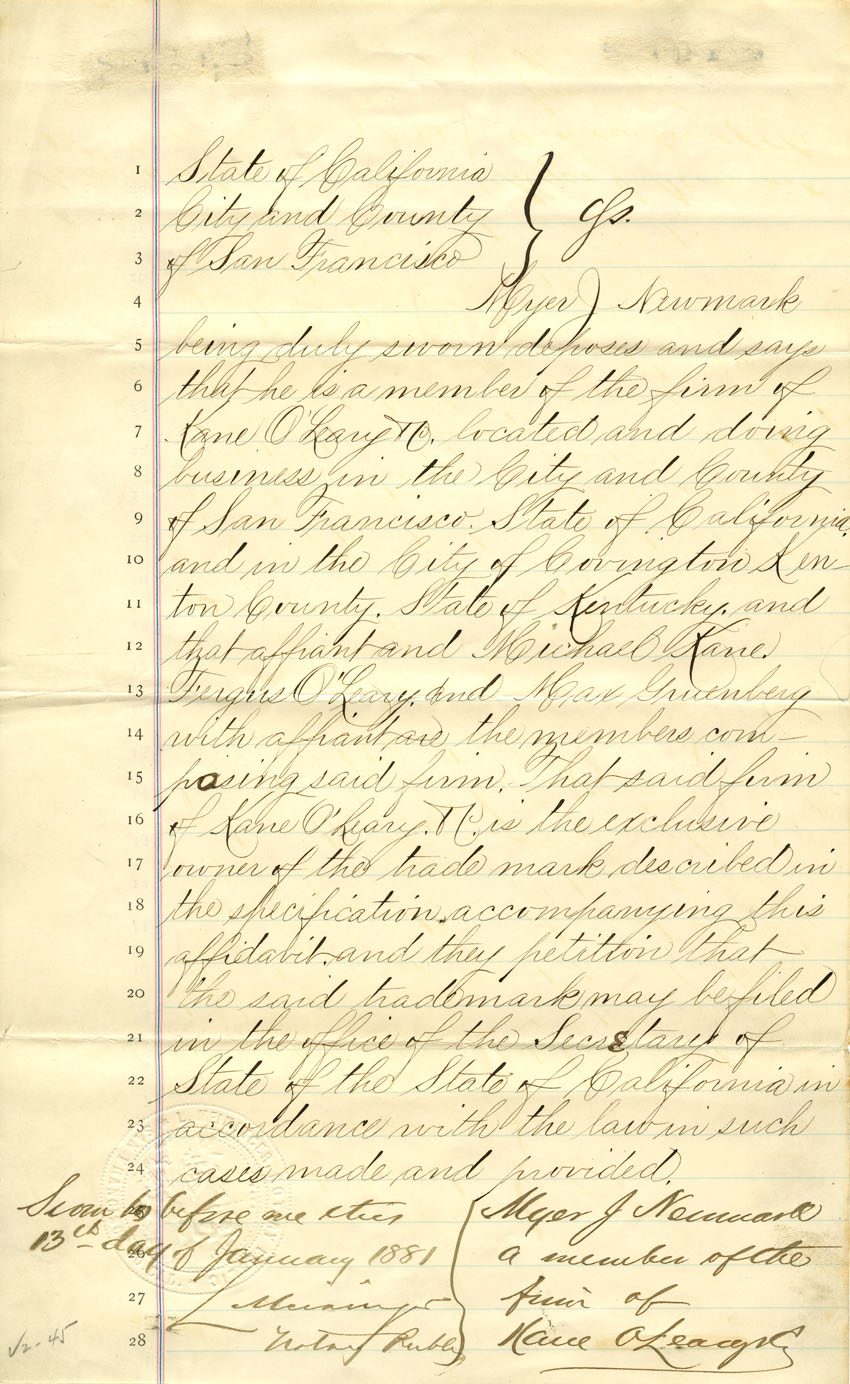 State of California
City and County } ss.
of San Francisco
Myer J Newmark
being duly sworn deposes and says
that he is a member of the firm of
Kane O'Leary & Co. located and doing
business in the City and County
of San Francisco. State of California.
and in the City of Covington Ken-
ton County. State of Kentucky. and
that affiant and Michael Kane.
Fergus O'Leary. and Max Gruenberg
with affiant are the members com-
posing said firm. That said firm
of Kane O'Leary. & Co. is the exclusive
owner of the trade mark described in
the specification accompanying this
affidavit. and they petition that
the said trademark may be filed
in the office of the Secretary of
State of the State of California in
accordance with the law in such
cases made and provided.
Sworn to before me this
13th day of January 1881
Notary Public
Myer J Newmark
a member of the
firm of
Kane O'Leary & Co